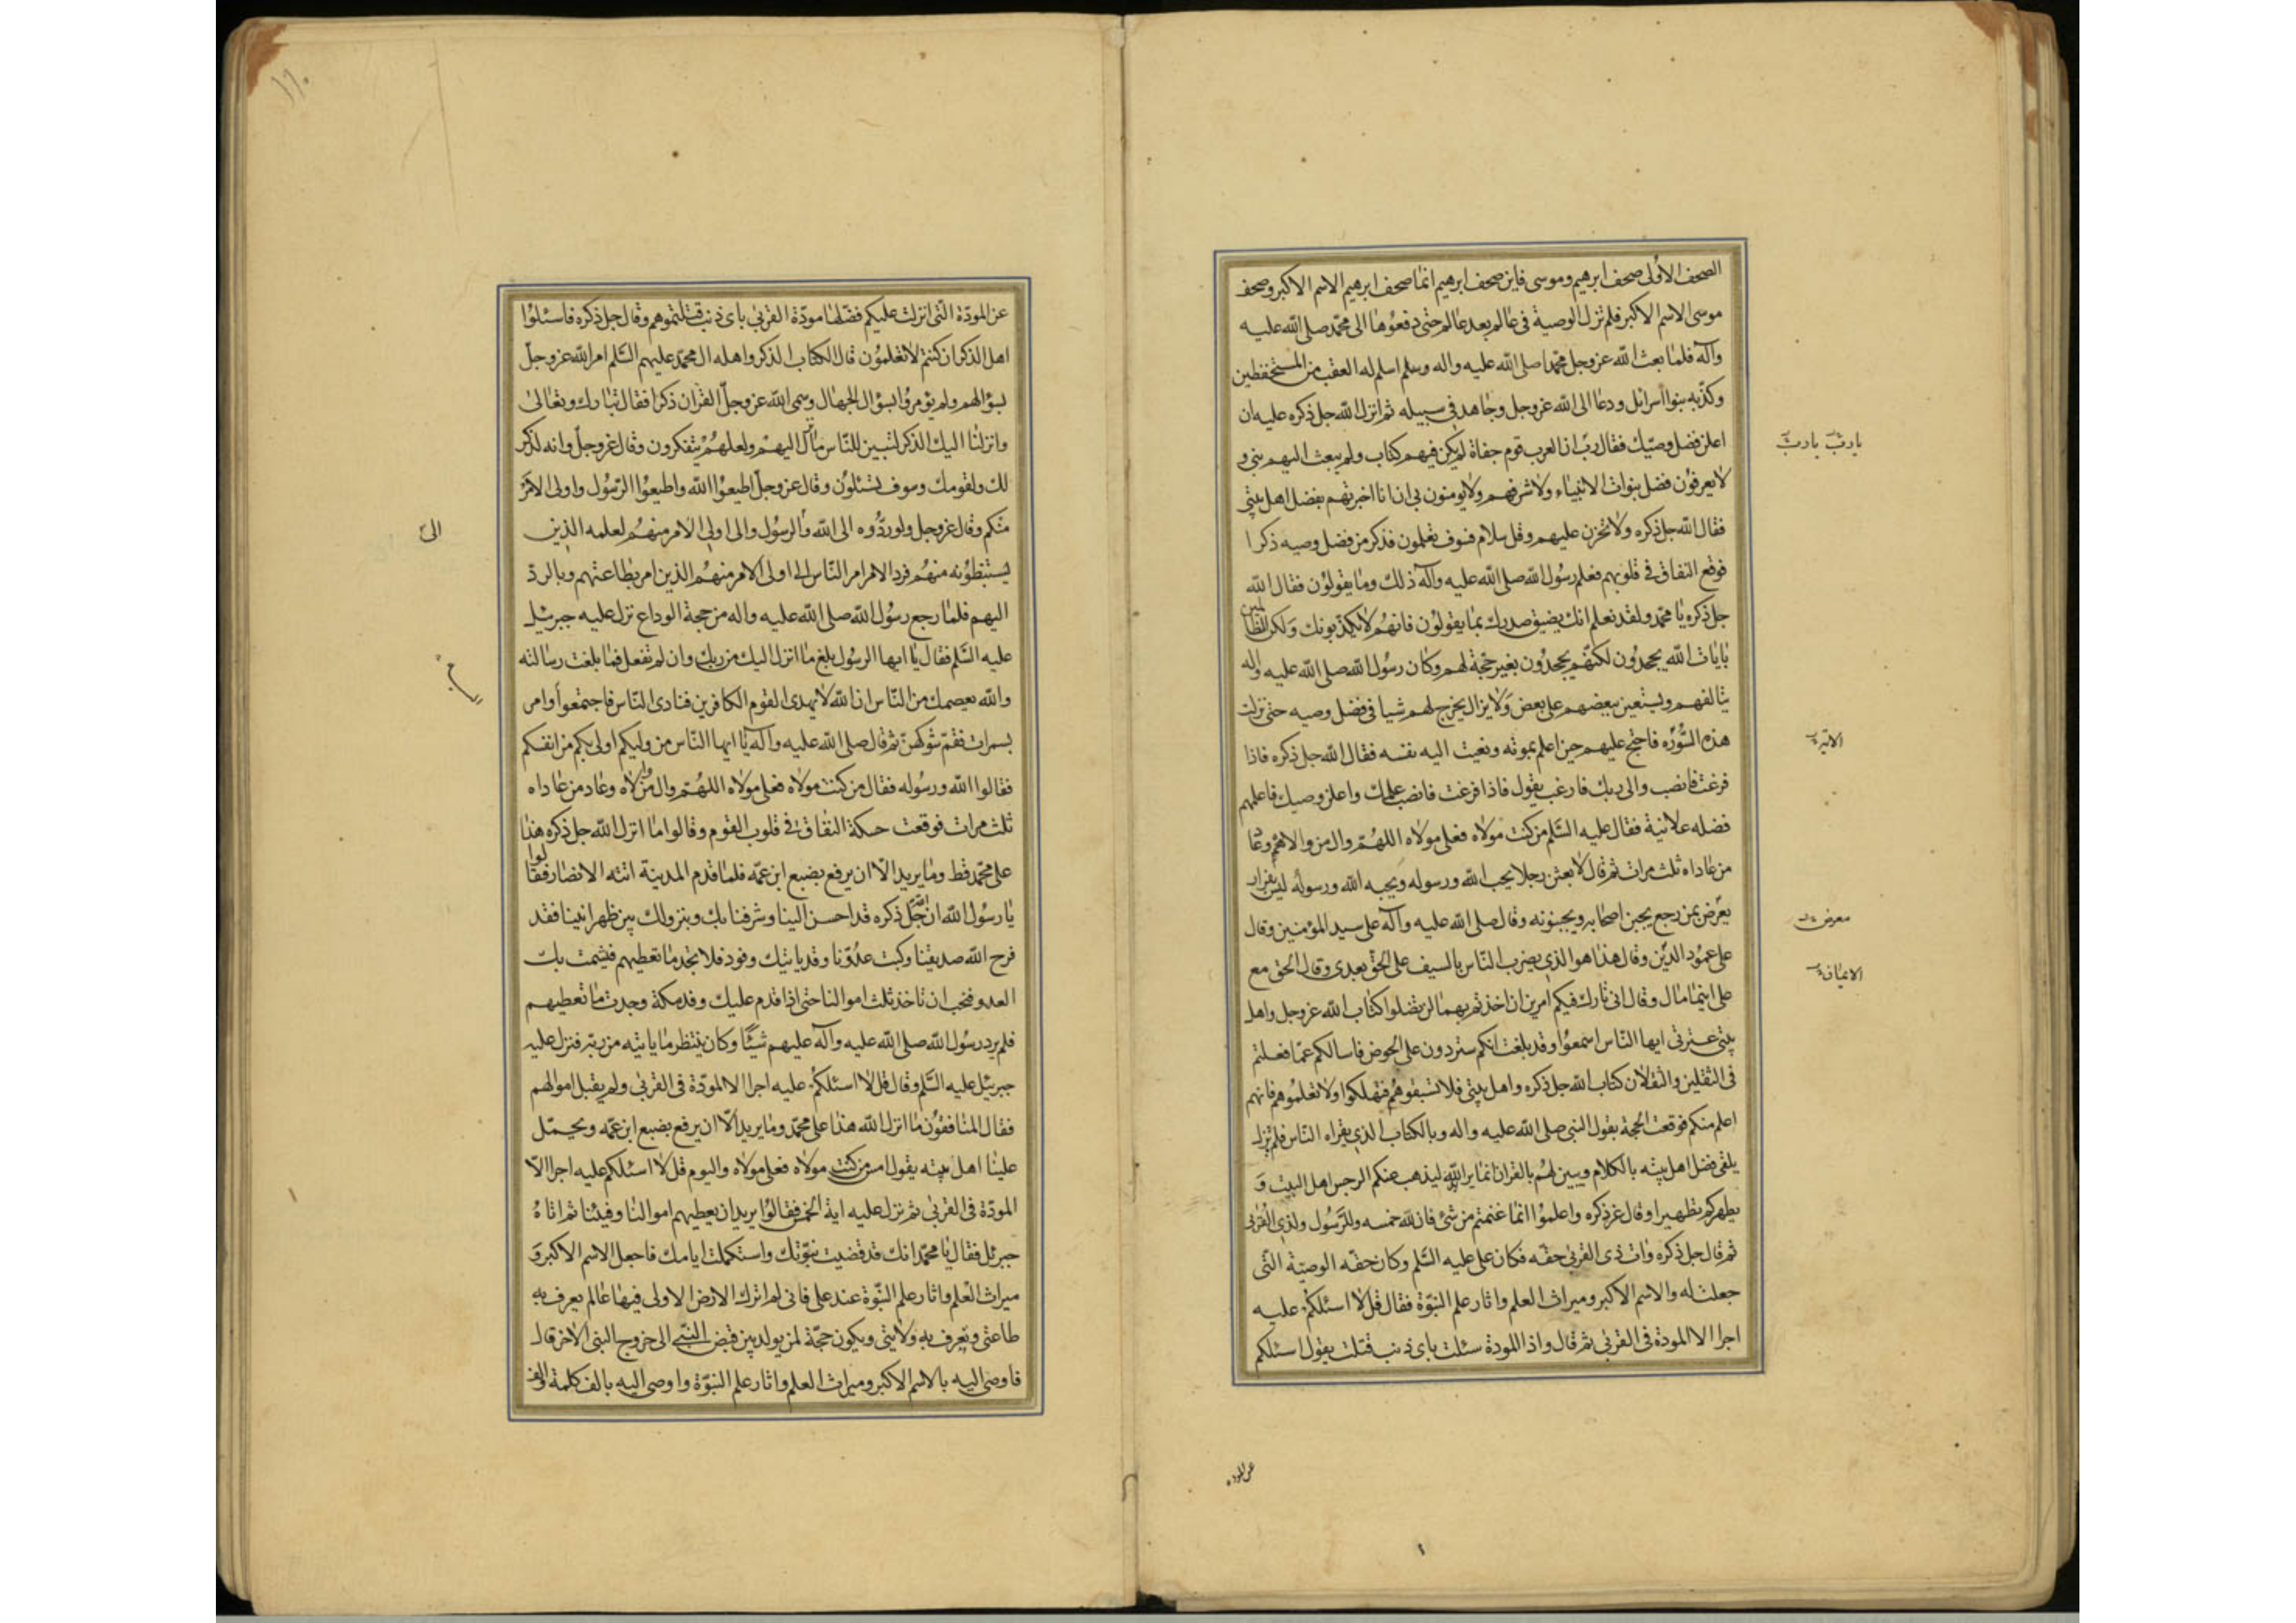 الصحف الاولى صحف ابرهيم وموسى فاين صحف ابرهيم انما صحف ابرهيم الاسم الاكبر وصحف
موسى الاسم الاكبر فلم تزل الوصية فى عالم بعد عالم حتى دفعوها الى محمد صلى الله عليه
وآله فلما بعث الله عز وجل محمدا صلى الله عليه واله وسلم اسلم له العقب من المستحفظين
وكذبه بنوا اسرائل ودعا الى الله عز وجل وجاهد فى سبيله ثم انزل الله جل ذكره عليه ان
اعلن فضل وصيك فقال رب ان العرب قوم جفاة لم يكن فيهم كتاب ولم يبعث اليهم نبى و
لا يعرفون فضل نبوات الانبياء ولا شرفهم ولا يومنون بى ان انا اخبرتهم بفضل اهل بيتى
فقال الله جل ذكره ولا تحزن عليهم وقل سلام فسوف تعلمون فذكر من فضل وصيه ذكرا
فوقع النفاق فى قلوبهم فعلم رسول الله صلى الله عليه وآله ذلك وما يقولون فقال الله
جل ذكره يا محمد ولقد نعلم انك يضيق صدرك بما يقولون فانهم لا يكذبونك ولكن الظالمين
بايات الله يجحدون لكنهم يجحدون بغير حجة لهم وكان رسول الله صلى الله عليه واله
يتالفهم ويستعين ببعضهم على بعض ولا يزال يخرج لهم شيا فى فضل وصيه حتى نزلت
هذه السورة فاحتج عليهم حين اعلم بموته ونعيت اليه نفسه فقال الله جل ذكره فاذا
فرغت فانصب والى ربك فارغب يقول فاذا فرغت فانصب علمك واعلن وصيك فاعلمهم
فضله علانية فقال عليه السلم من كنت مولاه فعلى مولاه اللهم وال من والاه وعا
من عاداه ثلث مرات ثم قال لابعثن رجلا يحب الله ورسوله ويحبه الله ورسوله ليس بفرار
يعرض بمن رجع يجبن اصحابه ويجبنونه وقال صلى الله عليه وآله على سيد المؤمنين وقال
على عمود الدين وقال هذا هو الذى يضرب الناس بالسيف على الحق بعدى وقال الحق مع
على اينما مال وقال انى تارك فيكم امرين ان اخذتم بهما لن تضلوا كتاب الله عز وجل واهل
بيتى عترتى ايها الناس اسمعوا وقد بلغت انكم ستردون على الحوض فاسالكم عما فعلتم
فى الثقلين والثقلان كتاب الله جل ذكره واهل بيتى فلا تسبقوهم فتهلكوا ولا تعلموهم فانهم
اعلم منكم فوقعت الحجة بقول النبى صلى الله عليه واله وبالكتاب الذى يقراه الناس فلم يزل
يلقى فضل اهل بيته بالكلام ويبين لهم بالقران انما يريد الله ليذهب عنكم الرجس اهل البيت و
يطهركم تطهيرا وقال عز ذكره واعلموا انما غنمتم من شئ فان لله خمسه وللرسول ولذى القربى
ثم قال جل ذكره وات ذى القربى حقه فكان على عليه السلم وكان حقه الوصية التى
جعلت له والاسم الاكبر وميراث العلم واثار علم النبوة فقال قل لا اسئلكم عليه
اجرا الا المودة فى القربى ثم قال واذا المودة سئلت باى ذنب قتلت يقول اسئلكم
يا رب
الاية
معرض
الايمان
عن المودة
عن المودة التى انزلت عليكم فضلها مودة القربى باى ذنب قتلتموهم وقال جل ذكره فاسئلوا
اهل الذكر ان كنتم لا تعلمون قال الكتاب الذكر واهله ال محمد عليهم السلم امر الله عز وجل
بسؤالهم ولم يؤمروا بسؤال الجهال وسمى الله عز وجل القران ذكرا فقال تبارك وتعالى
وانزلنا اليك الذكر لتبين للناس ما نزل اليهم ولعلهم يتفكرون وقال عز وجل وانه لذكر
لك ولقومك وسوف تسئلون وقال عز وجل اطيعوا الله واطيعوا الرسول واولى الامر
منكم وقال عز وجل ولو ردوه الى الله والرسول والى اولى الامر منهم لعلمه الذين
يستنبطونه منهم فرد الامر امر الناس الى اولى الامر منهم الذين امر بطاعتهم وبالرد
اليهم فلما رجع رسول الله صلى الله عليه واله من حجة الوداع نزل عليه جبرئيل
عليه السلم فقال يا ايها الرسول بلغ ما انزل اليك من ربك وان لم تفعل فما بلغت رسالته
والله يعصمك من الناس ان الله لا يهدى القوم الكافرين فنادى الناس فاجتمعوا وامر
بسمرات فقم شوكهن ثم قال صلى الله عليه وآله يا ايها الناس من وليكم اولى بكم من انفسكم
فقالوا الله ورسوله فقال من كنت مولاه فعلى مولاه اللهم وال من والاه وعاد من عاداه
ثلث مرات فوقعت حسكة النفاق فى قلوب القوم وقالوا ما انزل الله جل ذكره هذا
على محمد قط وما يريد الا ان يرفع بضبع ابن عمه فلما قدم المدينة اتته الانصار فقالوا
يا رسول الله ان الله جل ذكره قد احسن الينا وشرفنا بك وبنزولك بين ظهرانينا فقد
فرح الله صديقنا وكبت عدونا وقد ياتيك وفود فلا تجد ما تعطيهم فيشمت بك
العدو فنحب ان تاخذ ثلث اموالنا حتى اذا قدم عليك وفد مكة وجدت ما تعطيهم
فلم يرد رسول الله صلى الله عليه وآله عليهم شيئا وكان ينتظر ما ياتيه من ربه فنزل عليه
جبرئيل عليه السلم وقال قل لا اسئلكم عليه اجرا الا المودة فى القربى ولم يقبل اموالهم
فقال المنافقون ما انزل الله هذا على محمد وما يريد الا ان يرفع بضبع ابن عمه ويحمل
علينا اهل بيته يقول امس من كنت مولاه فعلى مولاه واليوم قل لا اسئلكم عليه اجرا الا
المودة فى القربى ثم نزل عليه اية الخمس فقالوا يريد ان يعطيهم اموالنا وفيئنا ثم اتاه
جبرئل فقال يا محمد انك قد قضيت نبوتك واستكملت ايامك فاجعل الاسم الاكبر و
ميراث العلم واثار علم النبوة عند على فانى لم اترك الارض الا ولى فيها عالم يعرف به
طاعتى وتعرف به ولايتى ويكون حجة لمن يولد بين قبض النبى الى خروج النبى الاخر قال
فاوصى اليه بالاسم الاكبر وميراث العلم واثار علم النبوة واوصى اليه بالف كلمة والف
الى